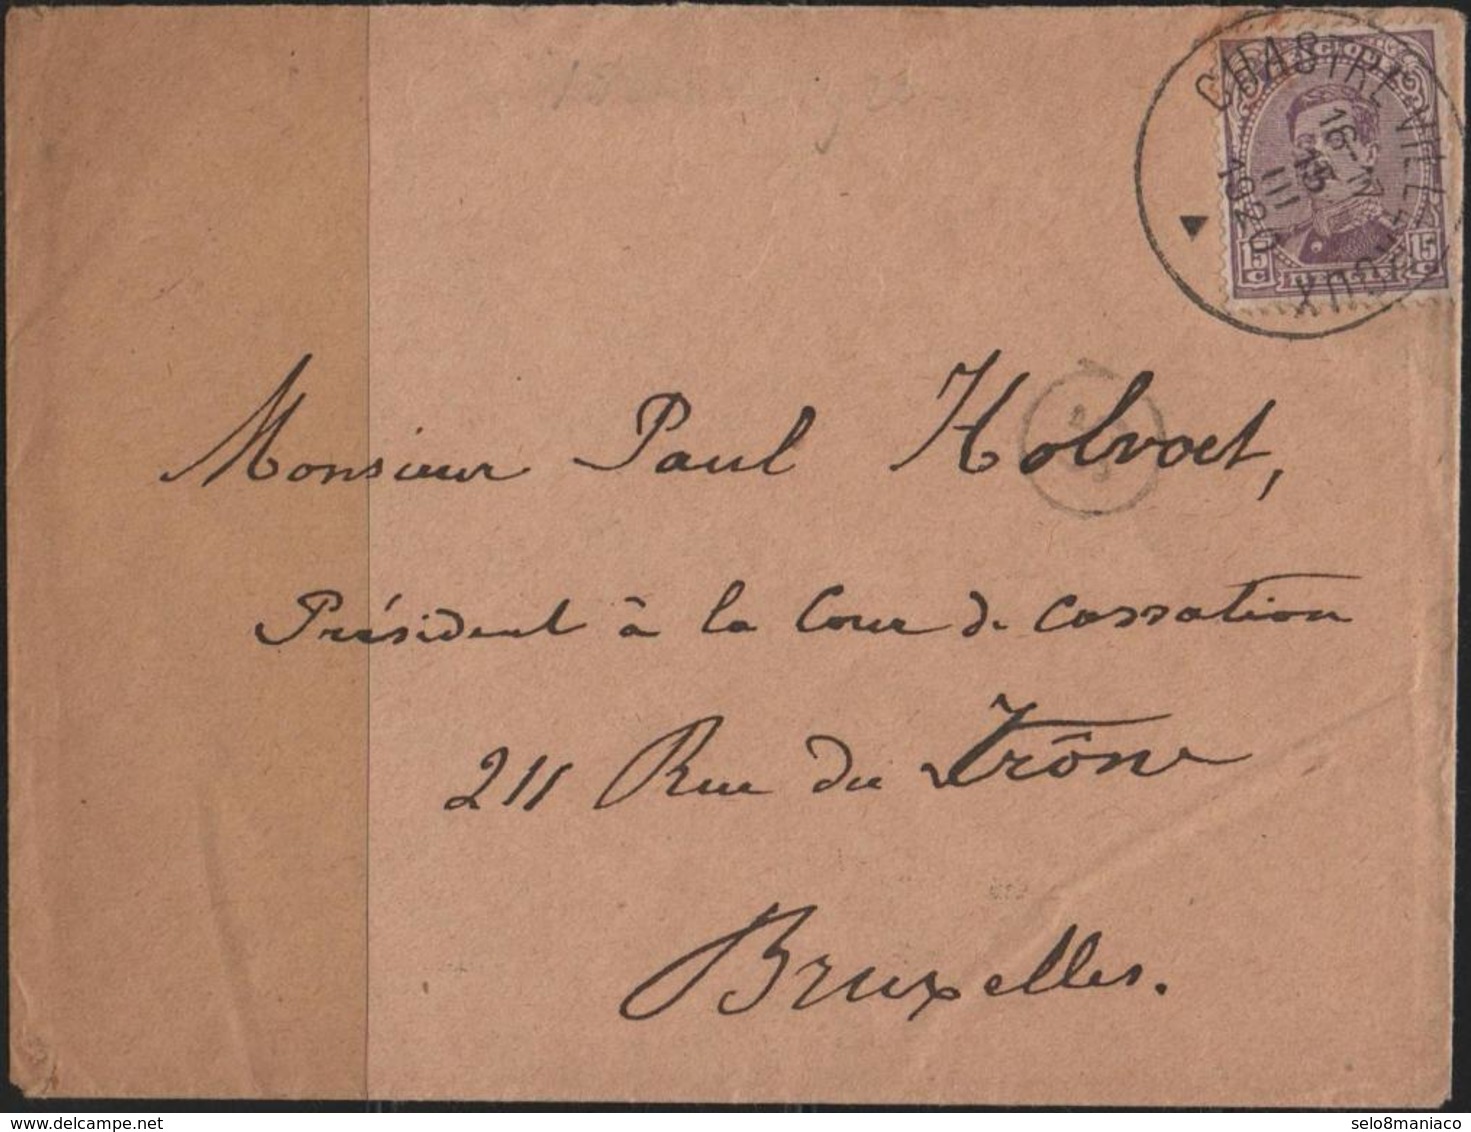 CHASTRE-VILLEROUX
16-17
15
III
1920
BELGIQUE
15 C
15 C
BELGIË
Monsieur Paul Holvoet,
Président à la Cour de Cassation
211 Rue du Trône
Bruxelles.
www.delcampe.net
selo8maniaco